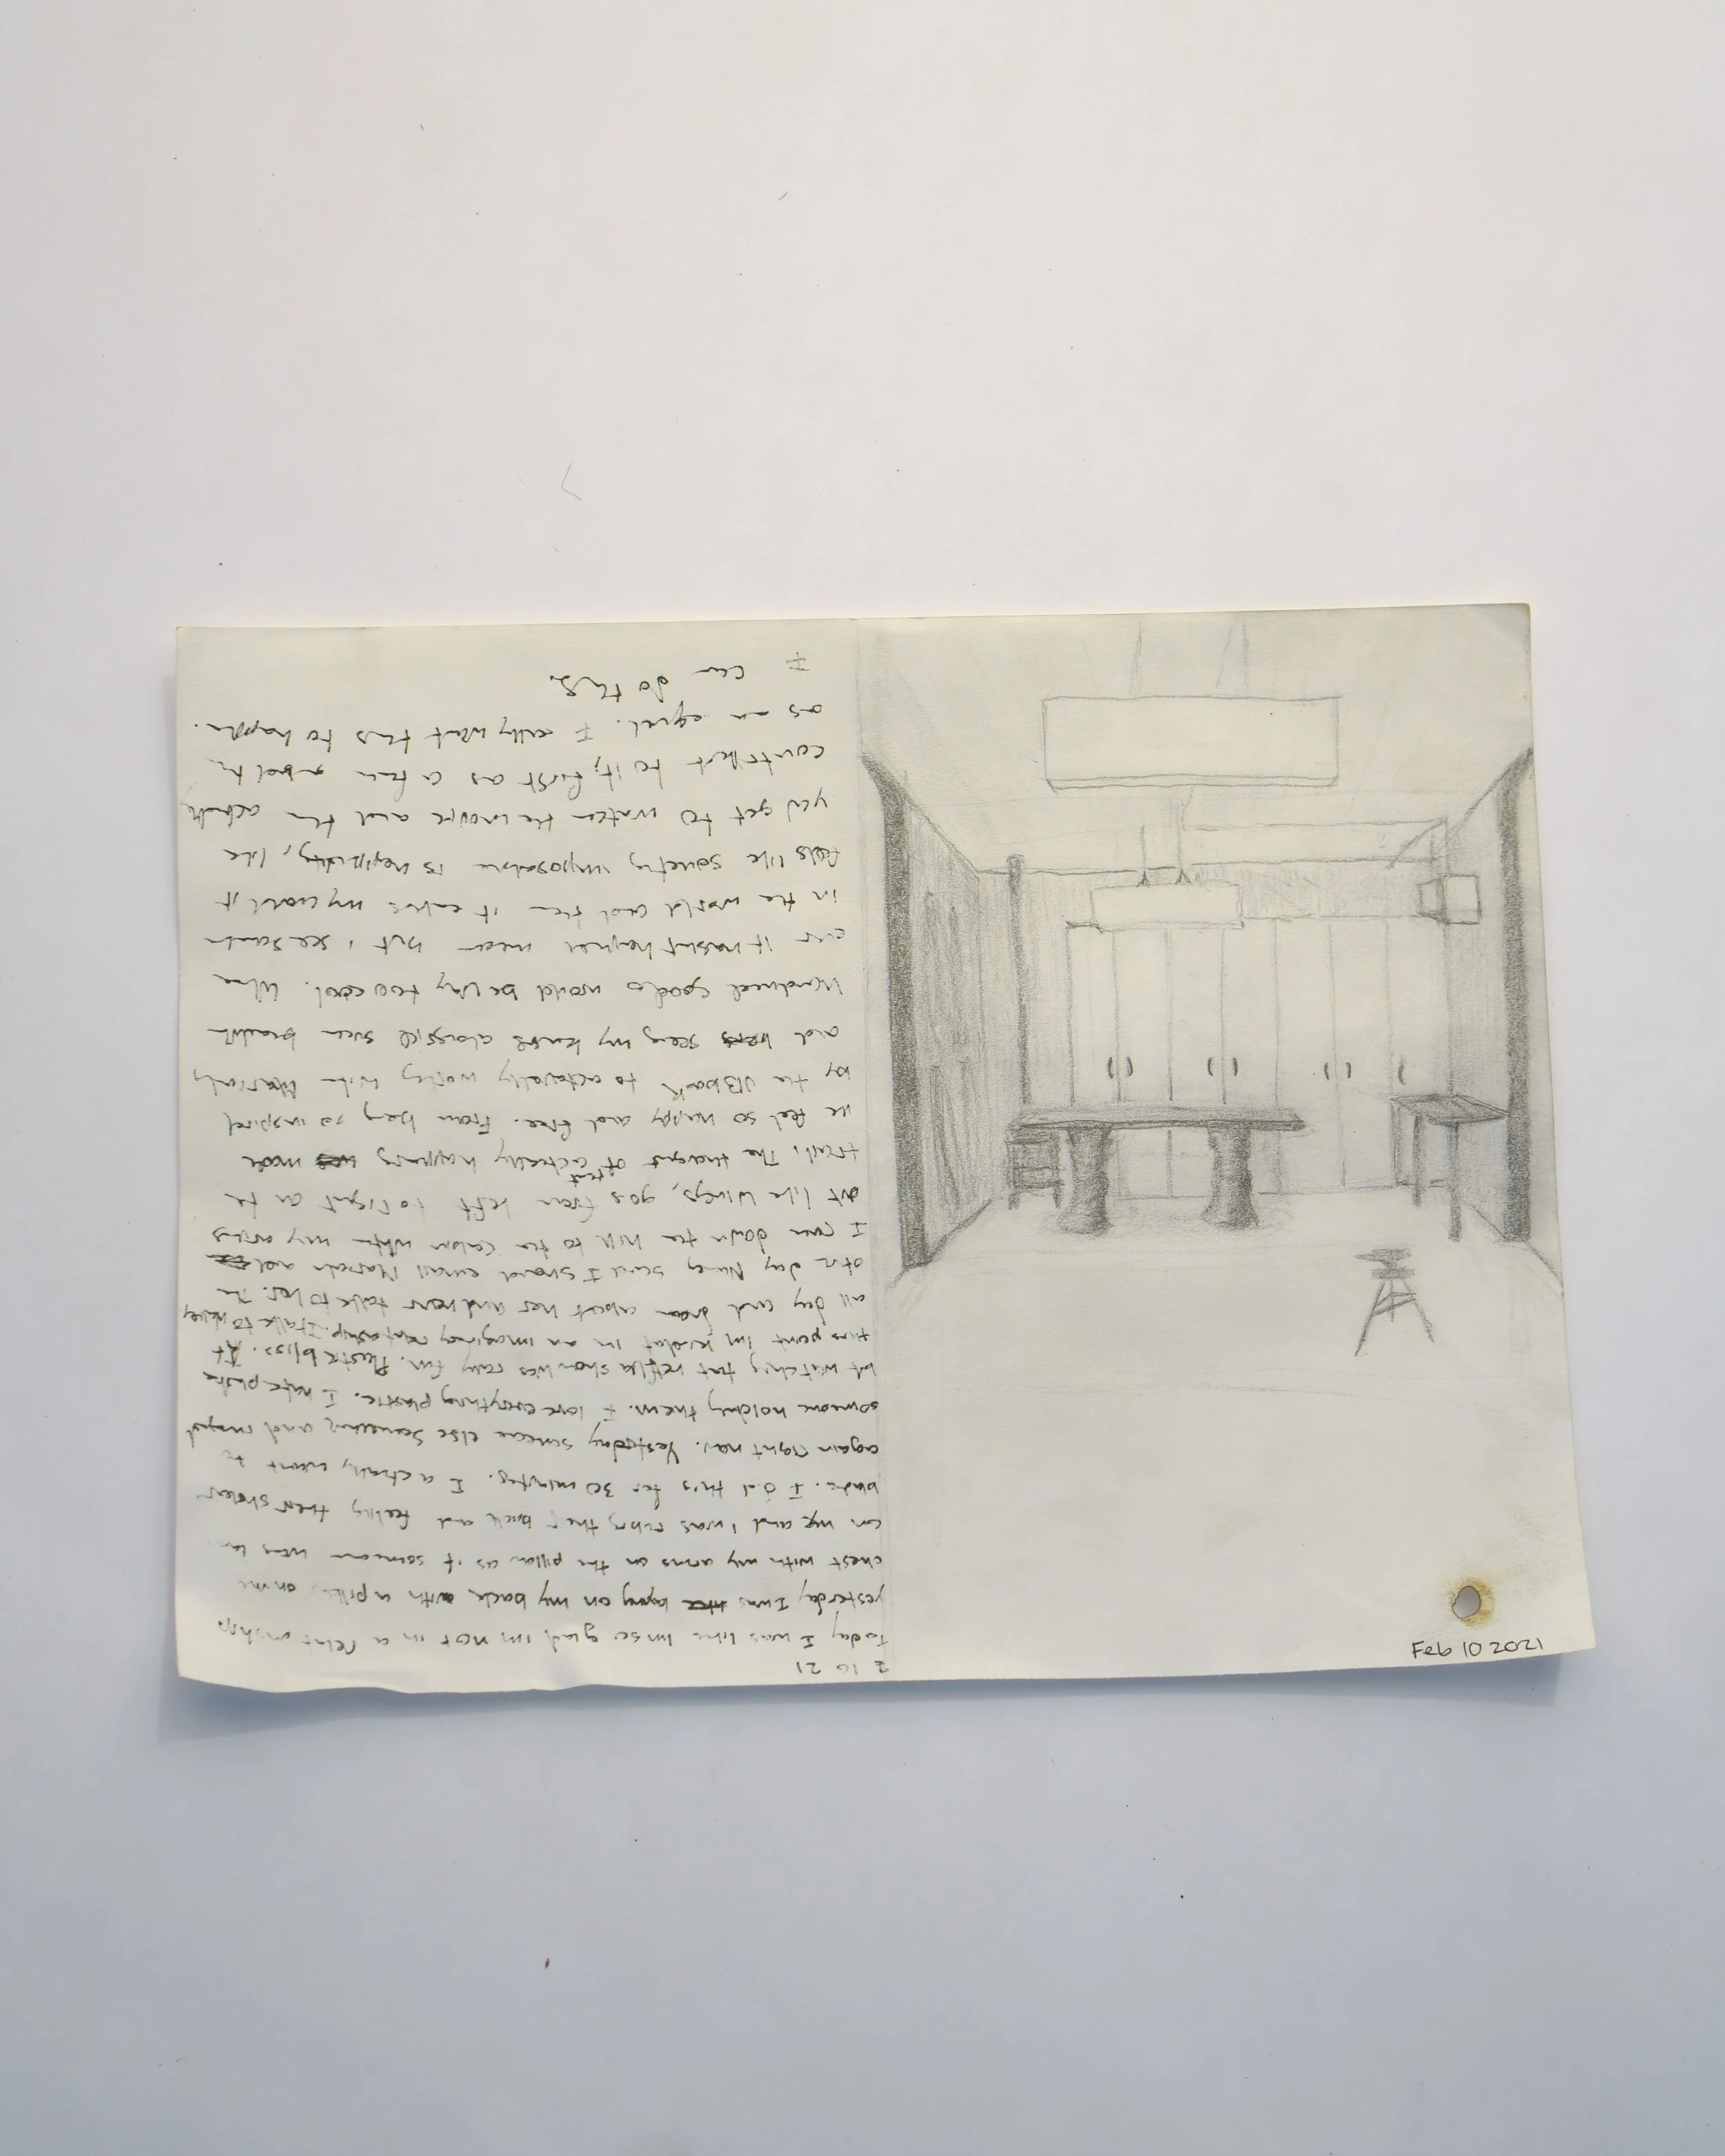 2 10 21
Today I was like im so glad im not in a relationship.
yesterday I was laying on my back with a pillow on my
chest with my arms on the pillow as if someone were
on me and I was rubing their back and feeling their sholder
blade. I did this for 30 minutes. I actually want to
again right now. Yesterday else and
someone holding them. I love everything plastic. I hate plastic
but watching that netflix show was really fun. Plastic bliss. At
this point im kindof in an imaginary relationship. I talk to
all day and dream about her and never talk to her. The
other day Nancy said I should email and
I ran down the hill to the cabin with my arms
out like wings, going from left to right on the
trail. The thought of that actually happening made
me feel so happy and free. From being so inspired
by the to actually working with
and seeing my alongside such beautiful
goods would be way too cool. When
it hasnt happen but I see
in the world and then it enters my world it
feels like something impossible is happening, like
you get to watch the movie and then actually
contribute to it, first as a fan and
as an equal. I really want this to happen.
I can do this.
Feb 10 2021